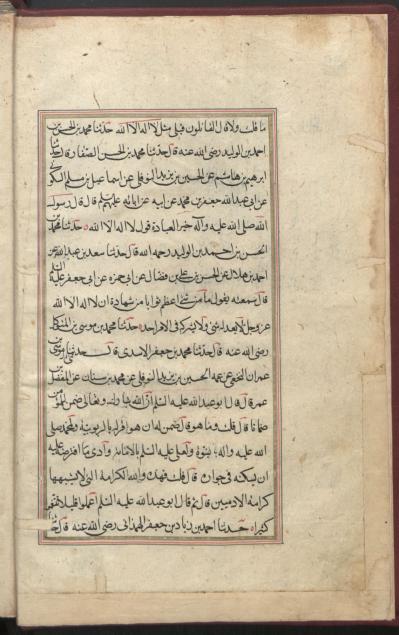 ما قلت ولا قال القائلون قبلي مثل لا اله الا الله حدثنا محمد بن الحسن بن
احمد بن الوليد رضى الله عنه قال حدثنا محمد بن الحسن الصفار قال حدثنا
ابرهيم بن هاشم عن الحسين بن يزيد النوفلي عن اسماعيل بن مسلم السكوني
عن ابى عبدالله جعفر بن محمد عن ابيه عن ابائه عليهم السلم قال قال رسول
الله صلى الله عليه وآله خير العبادة قول لا اله الا الله حدثنا محمد بن
الحسن بن احمد بن الوليد رحمه الله قال حدثنا سعد بن عبدالله عن
احمد بن هلال عن الحسن بن على بن فضال عن ابى حمزه عن ابى جعفر عليه السلم
قال سمعته يقول ما من شئ اعظم ثوابا من شهادة ان لا اله الا الله
عز وجل لا يعدله شئ ولا يشركه فى الامر احد حدثنا محمد بن موسى بن المتوكل
رضى الله عنه قال حدثنا محمد بن جعفر الاسدى قال حدثنى موسى بن
عمران النخعى عن عمه الحسين بن يزيد النوفلى عن محمد بن سنان عن المفضل بن
عمر قال قال ابو عبدالله عليه السلم ان الله تبارك وتعالى ضمن للمؤمن
ضمانا قال قلت وما هو قال ضمن له ان هو اقر له بالربوبية ولمحمد صلى
الله عليه واله بالنبوة ولعلى عليه السلم بالامامة وادى ما افترض عليه
ان يسكنه فى جواره قال قلت فهذه والله الكرامة التى لا يشبهها
كرامة الادميين قال ثم قال ابو عبدالله عليه السلم اعملوا قليلا تتنعموا
كثيرا حدثنا احمد بن زياد بن جعفر الهمدانى رضى الله عنه قال حدثنا